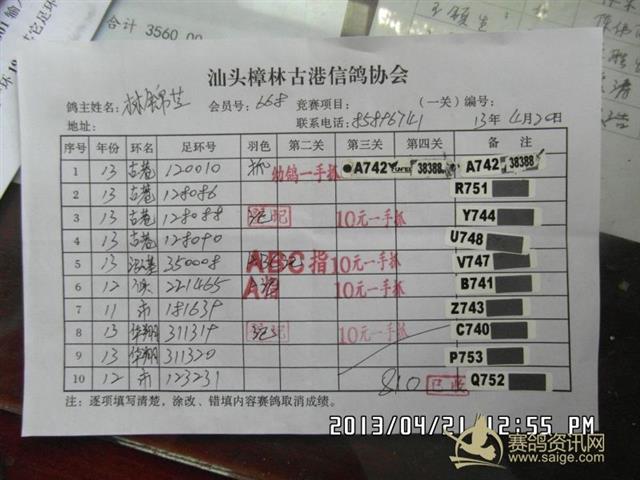 合计 3560.00
汕头樟林古港信鸽协会
鸽主姓名: 林锦芝 会员号: 668 竞赛项目: (一关) 编号:
地址: 联系电话: 85896741 13年4月20日
序号 年份 环名 足环号 羽色 第二关 第三关 第四关 备注
1 13 古巷 120010 幼鸽一手抓 A742 38388 A742 38388
2 13 古巷 128086 R751
3 13 古巷 128088 10元一手抓 Y744
4 13 古巷 128090 U748
5 13 350008 ABC指 10元一手抓 V747
6 12 221465 A指 10元一手抓 B741
7 11 市 181639 Z743
8 13 华翔 311319 10元一手抓 C740
9 13 华翔 311320 P753
10 12 市 123231 810 Q752
注: 逐项填写清楚,涂改、错填内容赛鸽取消成绩。
2013/04/21 12:55 PM
赛鸽资讯网
www.saige.com